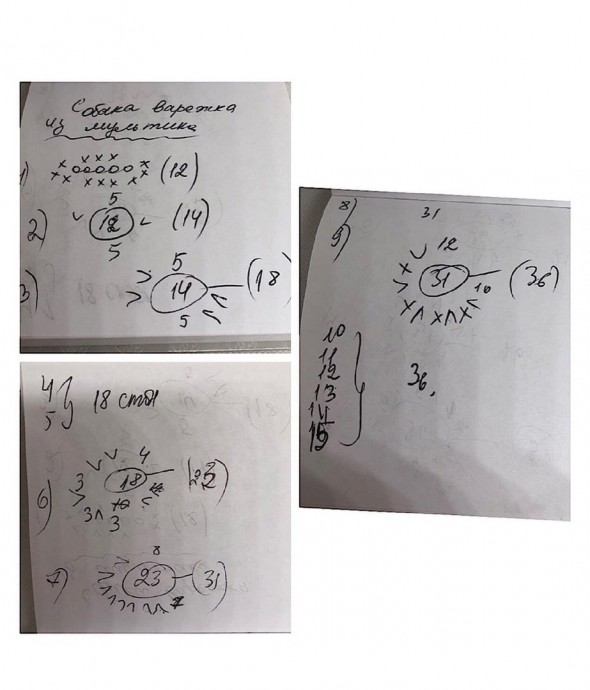 Собака варежка
из мультика
х х х
х ооооо х
х х х х х х х (12)
5
2) v (12) v (14)
5
5
3) > > 14 (18)
5
4
5 } 18 стол
4
3 18
6)
3 ʌ
3
8
7) 23 (31)
8) 31
9)
v 12
х 31 (36)
> 10
х ʌ х ʌ х
10
11
12
13
14
15
36.